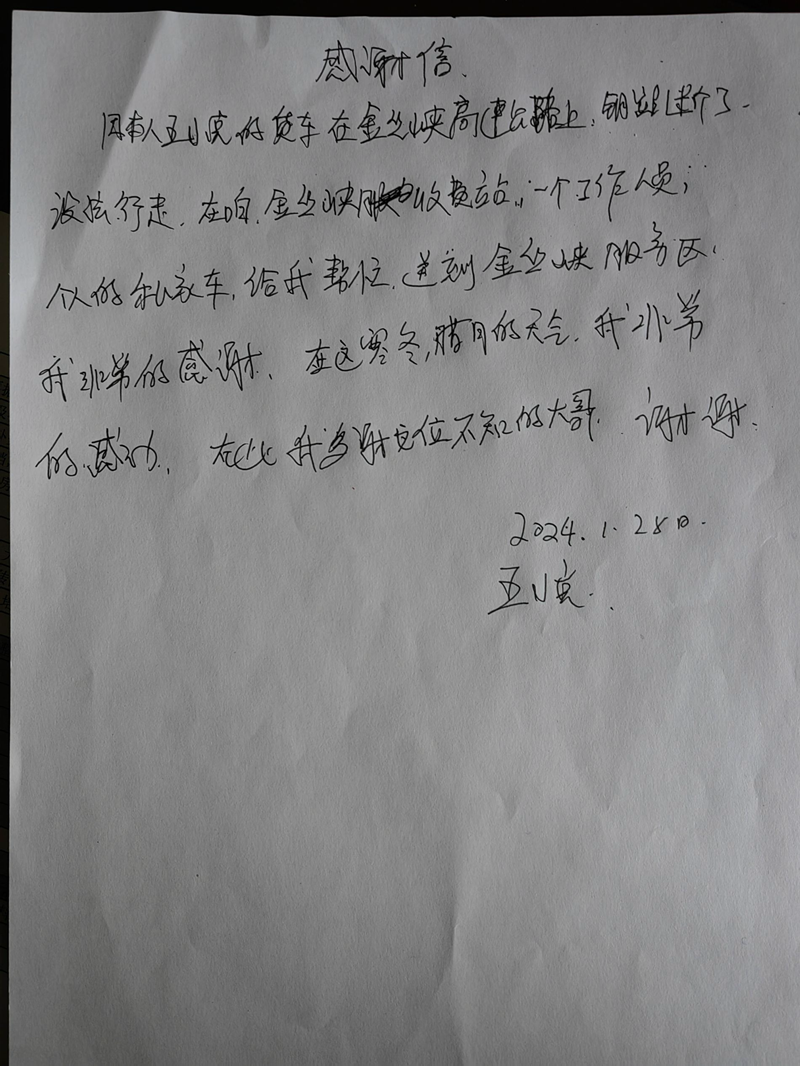 感谢信.
本人王小亮的货车在金丝峡高速公路上,钥匙
没法行走.在咱.金丝峡收费站,一个工作人员;
个人的私家车,给我帮忙.送到金丝峡服务区.
我非常的感谢.在这寒冬,腊月的天气.我非常
的.感动.在此我多谢这位不知的大哥.谢谢.
2024.1.28日.